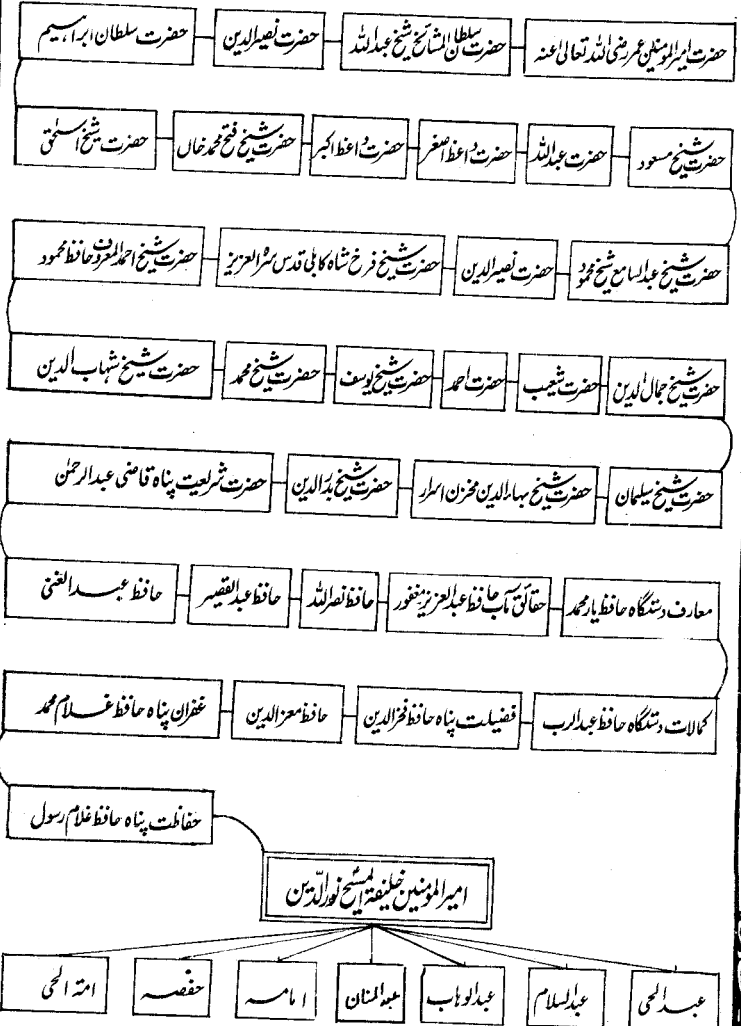 حضرت امیرالمومنین عمر رضی اللہ تعالیٰ عنہ حضرت سلطان المشائخ شیخ عبداللہ حضرت نصیرالدین حضرت سلطان ابراہیم
حضرت شیخ مسعود حضرت عبداللہ حضرت واعظ اصغر حضرت واعظ اکبر حضرت شیخ فتح محمد خاں حضرت شیخ اسحٰق
حضرت شیخ عبدالسامع شیخ محمود حضرت نصیرالدین حضرت شیخ فرخ شاہ کابلی قدس سرہ العزیز حضرت شیخ احمد المعروف حافظ محمود
حضرت شیخ جمال الدین حضرت شعیب حضرت احمد حضرت شیخ یوسف حضرت شیخ محمد حضرت شیخ شہاب الدین
حضرت شیخ سلیمان حضرت شیخ بہاء الدین مخزن اسرار حضرت شیخ بدر الدین حضرت شریعت پناہ قاضی عبدالرحمٰن
معارف دستگاہ حافظ یار محمد حقائق مآب حافظ عبدالعزیز مغفور حافظ نصراللہ حافظ عبدالقصیر حافظ عبدالغنی
کمالات دستگاہ حافظ عبدالرب فضیلت پناہ حافظ فخرالدین حافظ معزالدین غفران پناہ حافظ غلام محمد
حفاظت پناہ حافظ غلام رسول
امیرالمومنین خلیفۃ المسیح نورالدّین
عبدالحی عبدالسلام عبدالوہاب عبدالمنان امامہ حفصہ امۃ الحی